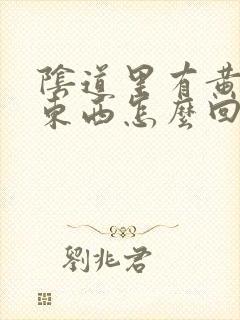 陰道里有黄
東西怎麽回
劉兆君